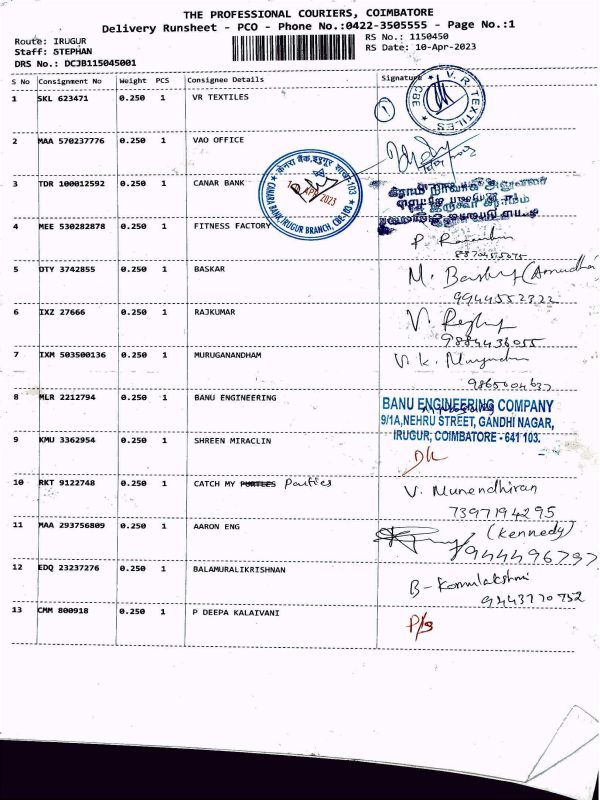 THE PROFESSIONAL COURIERS, COIMBATORE
Delivery Runsheet - PCO - Phone No.:0422-3505555 - Page No.:1
Route: IRUGUR
Staff: STEPHAN
DRS No.: DCJB115045001
RS No.: 1150450
RS Date: 10-Apr-2023
S No Consignment No Weight PCS Consignee Details Signature
1 SKL 623471 0.250 1 VR TEXTILES
1
V. R. TEXTILES
CBE
2 MAA 570237776 0.250 1 VAO OFFICE
3 TDR 100012592 0.250 1 CANAR BANK
केनरा बैंक, इरुगूर शाखा-103
APR 2023
CANARA BANK, IRUGUR BRANCH, CBE-103
4 MEE 530282878 0.250 1 FITNESS FACTORY
5 DTY 3742855 0.250 1 BASKAR M.
9944552322
6 IXZ 27666 0.250 1 RAJKUMAR V.
9884436055
7 IXM 503500136 0.250 1 MURUGANANDHAM V. K.
9865004637
8 MLR 2212794 0.250 1 BANU ENGINEERING
BANU ENGINEERING COMPANY
9/1A,NEHRU STREET, GANDHI NAGAR,
IRUGUR, COIMBATORE - 641 103.
9 KMU 3362954 0.250 1 SHREEN MIRACLIN
10 RKT 9122748 0.250 1 CATCH MY PURTEES Parties V. Munendhiran
7397194295
11 MAA 293756809 0.250 1 AARON ENG (Kennedy)
9444496797
12 EDQ 23237276 0.250 1 BALAMURALIKRISHNAN B- Komulakshmi
9443770752
13 CMM 800918 0.250 1 P DEEPA KALAIVANI P/s